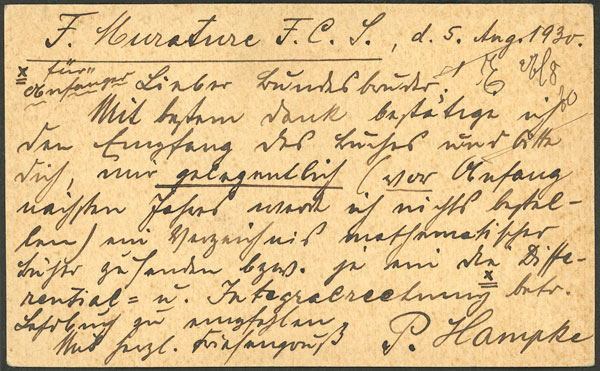 F. Murature F.C.S., d. 5. Aug. 1930.
x für
Anfänger
Lieber Bundesbruder!
Mit bestem Dank bestätige ich
den Empfang des Buches und bitte
dich, mir gelegentlich (vor Anfang
nächsten Jahres werde ich nichts bestel-
len) ein Verzeichnis mathematischer
Bücher zu senden bzw. je ein die Diffe-
rential= u. Integralrechnung x betr.
Lehrbuch zu empfehlen
Mit herzl. Friesengruß
P. Hampke